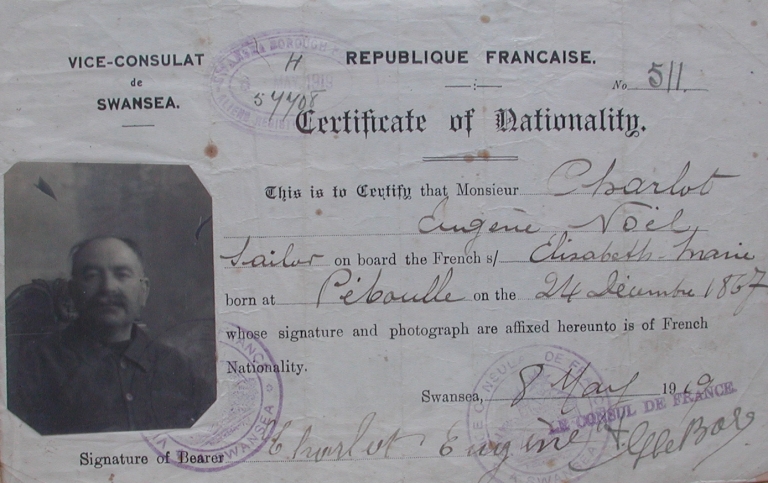 VICE-CONSULAT
de
SWANSEA.
REPUBLIQUE FRANCAISE.
No 511.
H
57708
Certificate of Nationality.
This is to Certify that Monsieur Charlot
Eugène Noël,
Sailor on board the French s/ Elisabeth-Marie
born at on the 24 Décembre 1867
whose signature and photograph are affixed hereunto is of French
Nationality.
Swansea, 8 May 1919
LE CONSUL DE FRANCE.
Signature of Bearer Charlot Eugène